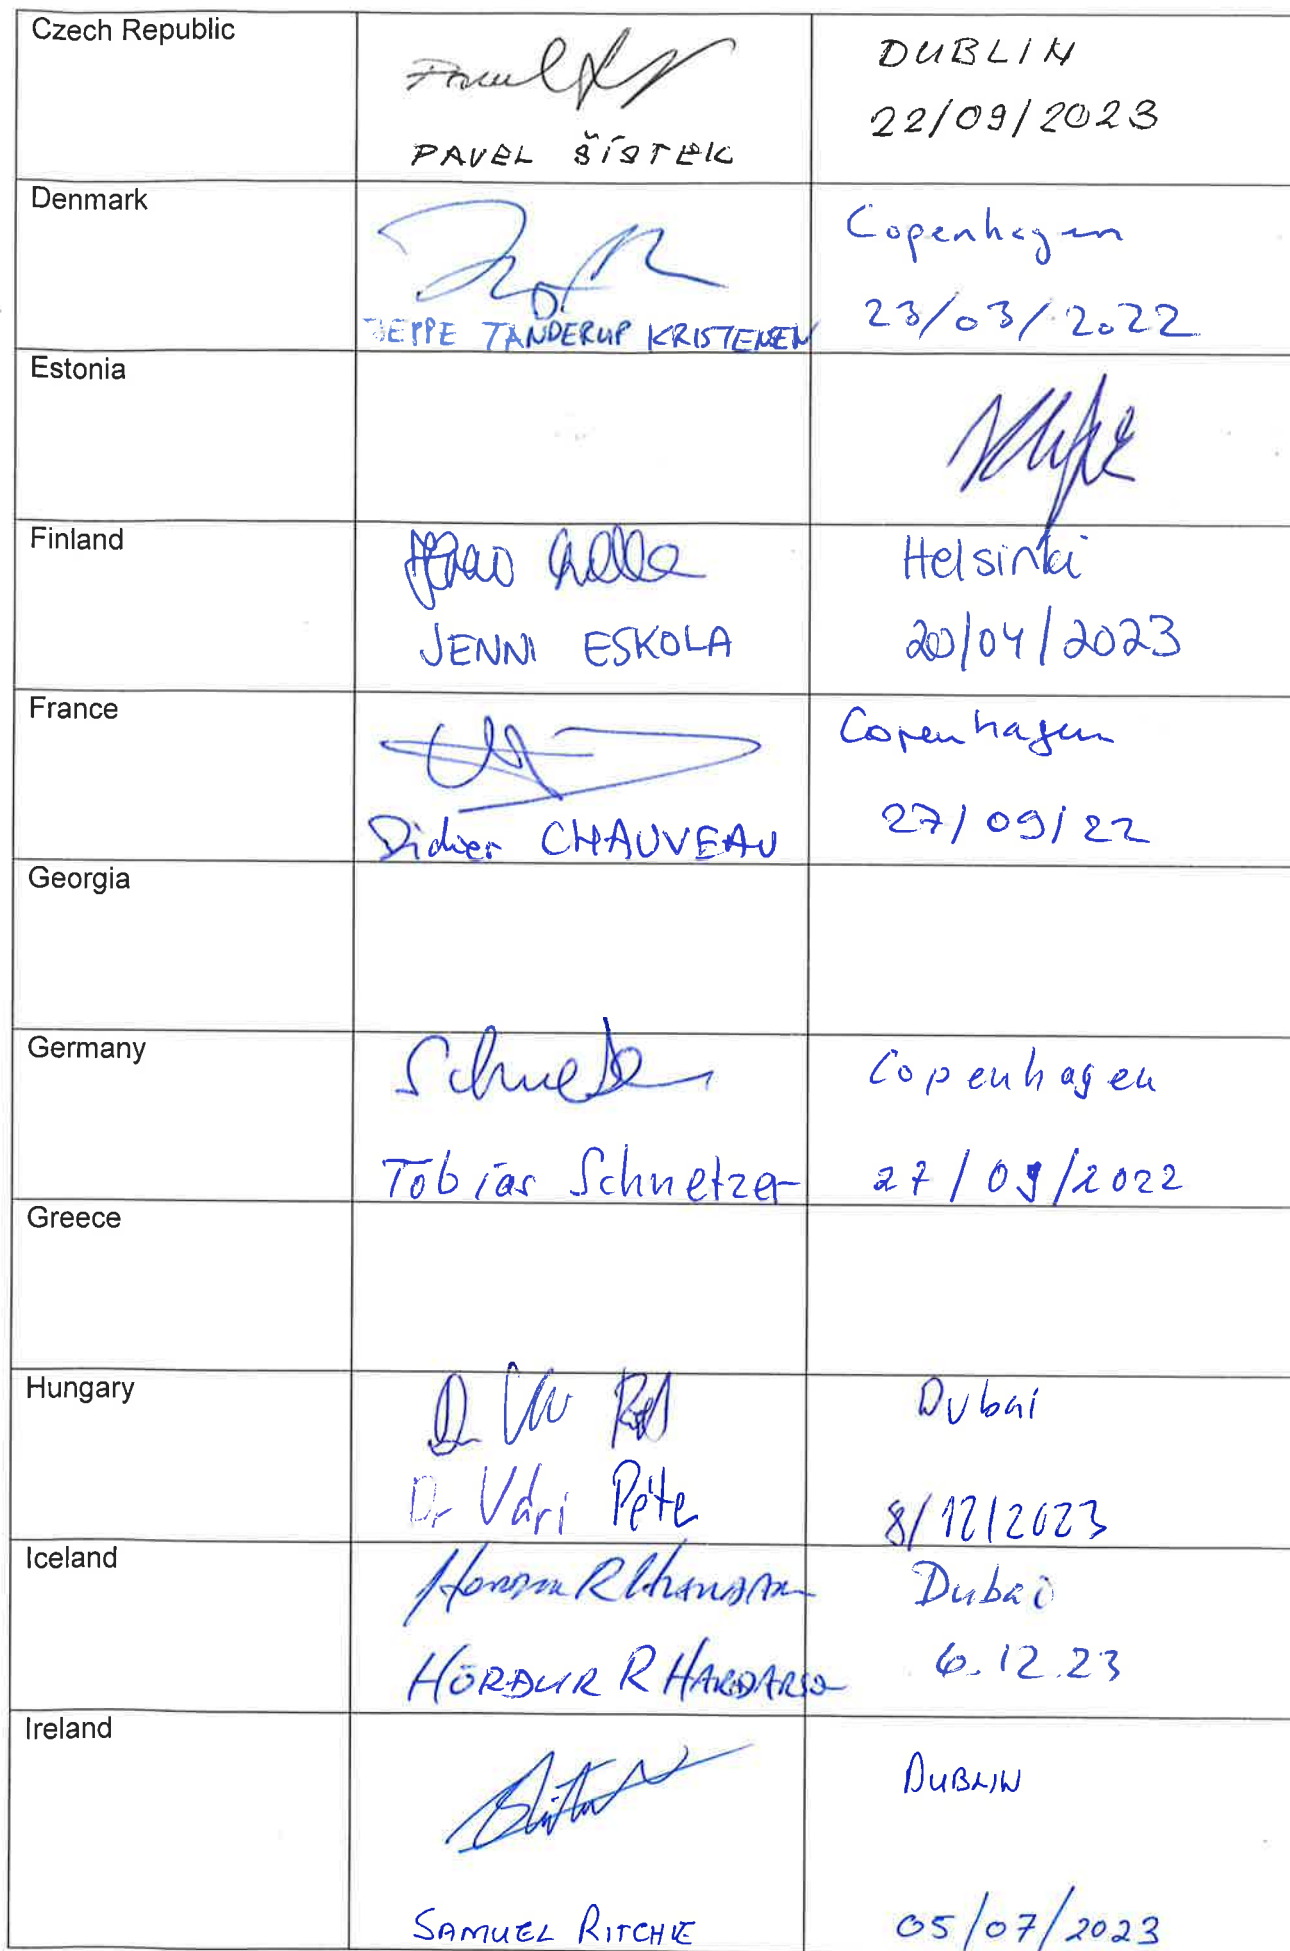 Czech Republic
PAVEL ŠÍSTEK
DUBLIN
22/09/2023
Denmark
JEPPE TANDERUP KRISTENSEN
Copenhagen
23/03/2022
Estonia
Finland
JENNI ESKOLA
Helsinki
20/04/2023
France
Didier CHAUVEAU
Copenhagen
27/09/22
Georgia
Germany
Tobias Schnetzer
Copenhagen
27/09/2022
Greece
Hungary
Dr Vári Péter
Dubai
8/12/2023
Iceland
HÖRÐUR R HARÐARSON
Dubai
6.12.23
Ireland
SAMUEL RITCHIE
DUBLIN
05/07/2023